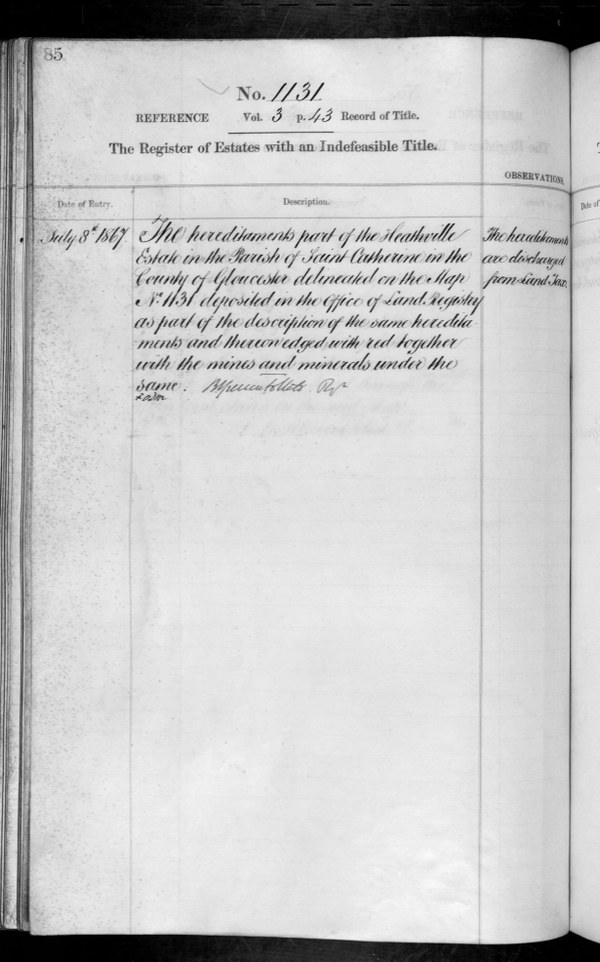 85
No. 1131
REFERENCE Vol. 3 p. 43 Record of Title.
The Register of Estates with an Indefeasible Title.
OBSERVATIONS
Date of Entry.
Description.
Date of
July 8th 1867
The hereditaments part of the Heathville
Estate in the Parish of Saint Catherine in the
County of Gloucester delineated on the Map
No. 1131 deposited in the Office of Land Registry
as part of the description of the same heredita-
ments and thereon edged with red together
with the mines and minerals under the
same.
Regr
The hereditaments
are discharged
from Land Tax.